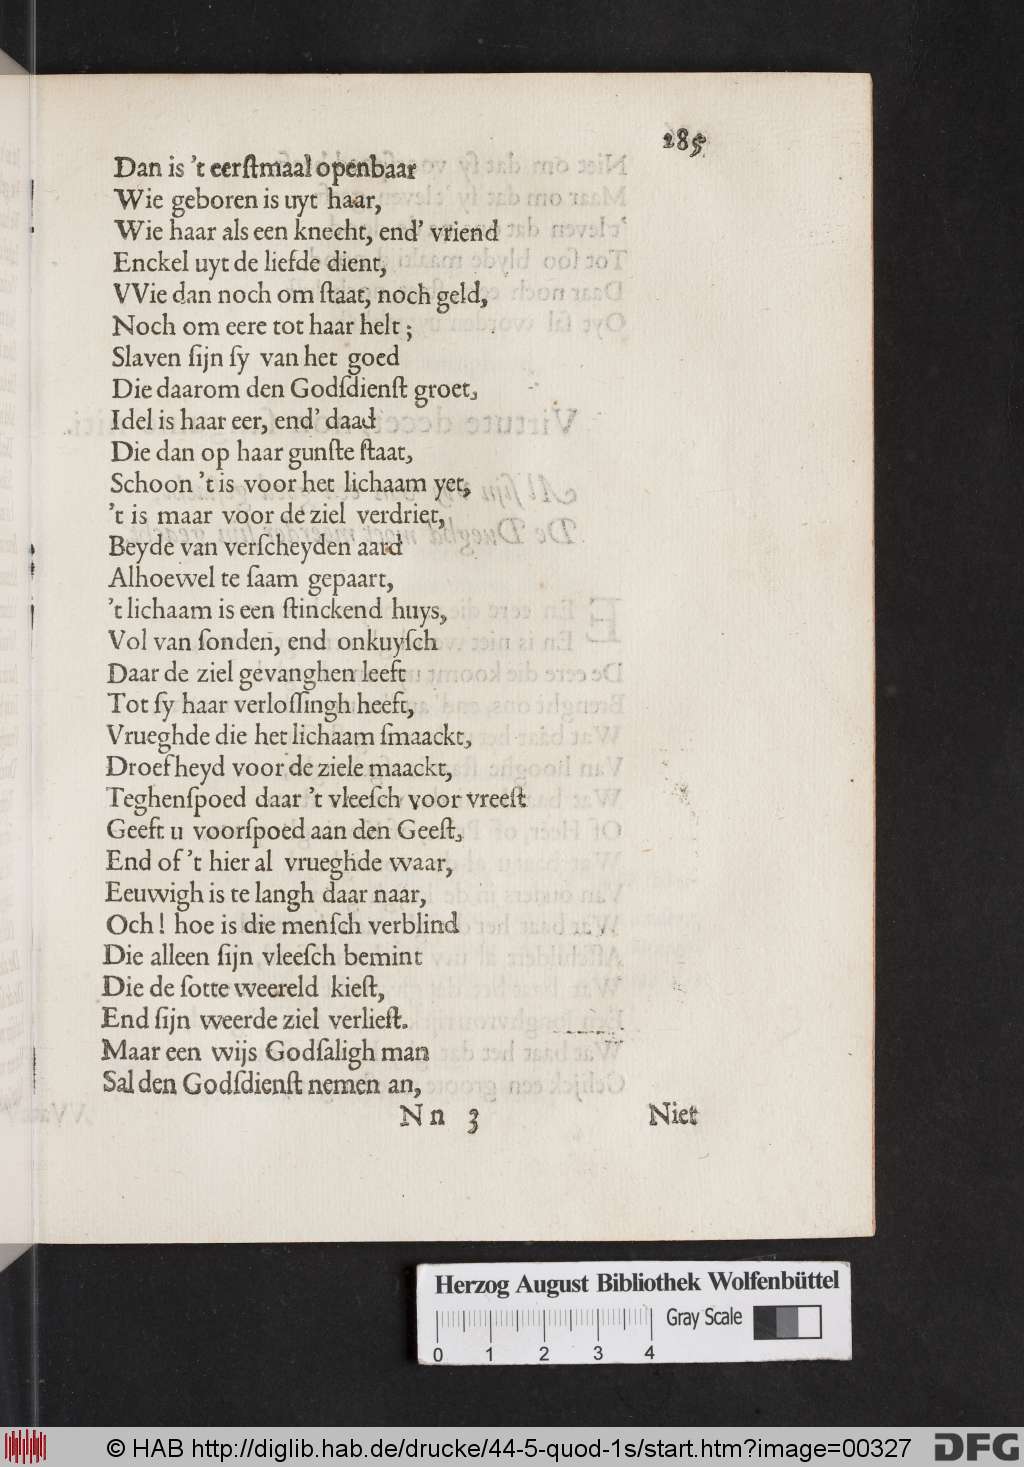 285
Dan is ’t eerſtmaal openbaar
Wie geboren is uyt haar,
Wie haar als een knecht, end’ vriend
Enckel uyt de liefde dient,
VVie dan noch om ſtaat, noch geld,
Noch om eere tot haar helt ;
Slaven ſijn ſy van het goed
Die daarom den Godſdienſt groet,
Idel is haar eer, end’ daad
Die dan op haar gunſte ſtaat,
Schoon ’t is voor het lichaam yet,
’t is maar voor de ziel verdriet,
Beyde van verſcheyden aard
Alhoewel te ſaam gepaart,
’t lichaam is een ſtinckend huys,
Vol van ſonden, end onkuyſch
Daar de ziel gevanghen leeft
Tot ſy haar verloſſingh heeft,
Vrueghde die het lichaam ſmaackt,
Droefheyd voor de ziele maackt,
Teghenſpoed daar ’t vleeſch voor vreeſt
Geeft u voorſpoed aan den Geeſt,
End of ’t hier al vrueghde waar,
Eeuwigh is te langh daar naar,
Och! hoe is die menſch verblind
Die alleen ſijn vleeſch bemint
Die de ſotte weereld kieſt,
End ſijn weerde ziel verlieſt.
Maar een wijs Godſaligh man
Sal den Godſdienſt nemen an,
N n 3 Niet
Herzog August Bibliothek Wolfenbüttel
Gray Scale
0 1 2 3 4
© HAB http://diglib.hab.de/drucke/44-5-quod-1s/start.htm?image=00327
DFG